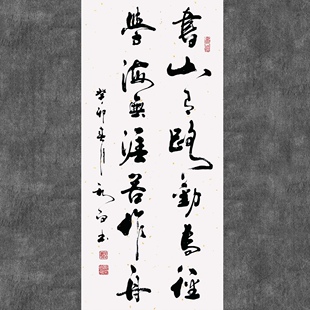 書山有路勤為徑
學海無涯苦作舟
癸卯年月